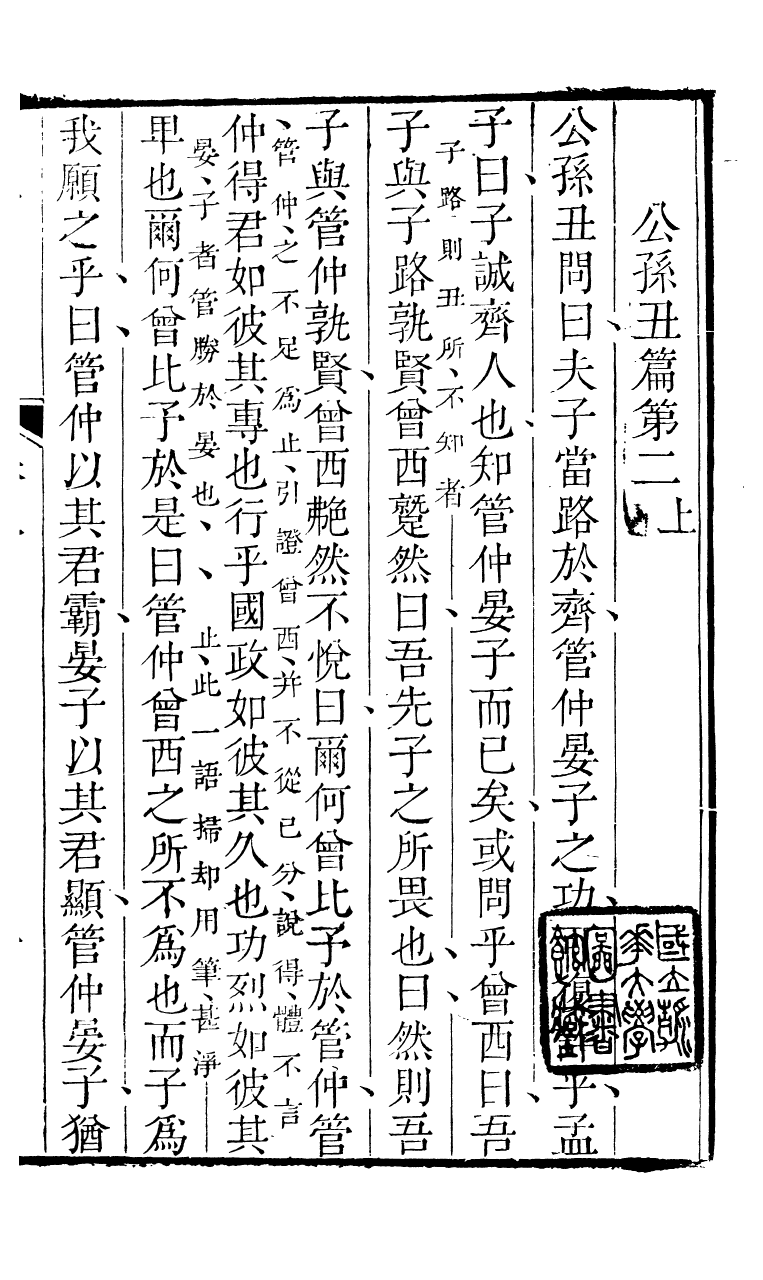 公孫丑篇第二上
公孫丑問曰夫子當路於齊管仲晏子之功可復許乎孟
子曰子誠齊人也知管仲晏子而已矣或問乎曾西曰吾
子路則丑所不知者
子與子路孰賢曾西蹵然曰吾先子之所畏也曰然則吾
子與管仲孰賢曾西艴然不悅曰爾何曾比予於管仲管
管仲之不足為止引證曾西并不從己分說得體不言
仲得君如彼其專也行乎國政如彼其久也功烈如彼其
晏子者管勝於晏也止此一語掃却用筆甚淨
卑也爾何曾比予於是曰管仲曾西之所不為也而子為
我願之乎曰管仲以其君霸晏子以其君顯管仲晏子猶